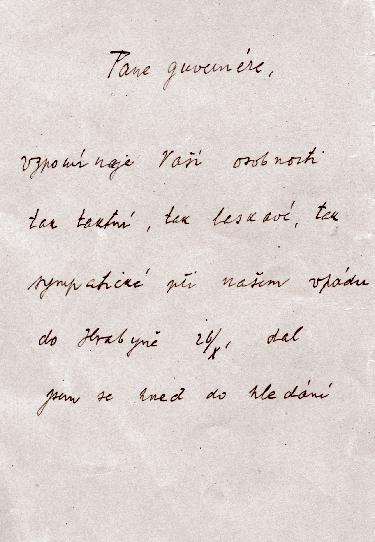 Pane guvernére,
vzpomínaje Vaší osobnosti
tak taktní, tak laskavé, tak
sympatické při našem vpádu
do Hrabyně 26/X, dal
jsem se hned do hledání